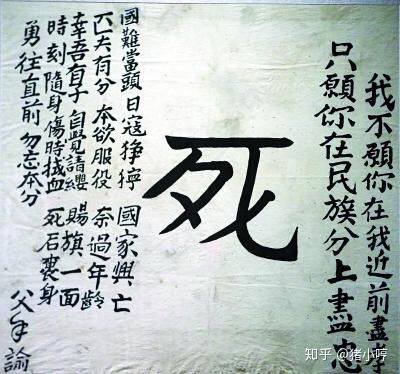 我不願你在我近前盡孝
只願你在民族分上盡忠
死
國難當頭 日寇猙獰 國家興亡
匹夫有分 本欲服役 奈過年齡
幸吾有子 自覺請纓 賜旗一面
時刻隨身 傷時拭血 死后裹身
勇往直前 勿忘本分
父手諭
知乎 @猪小哼